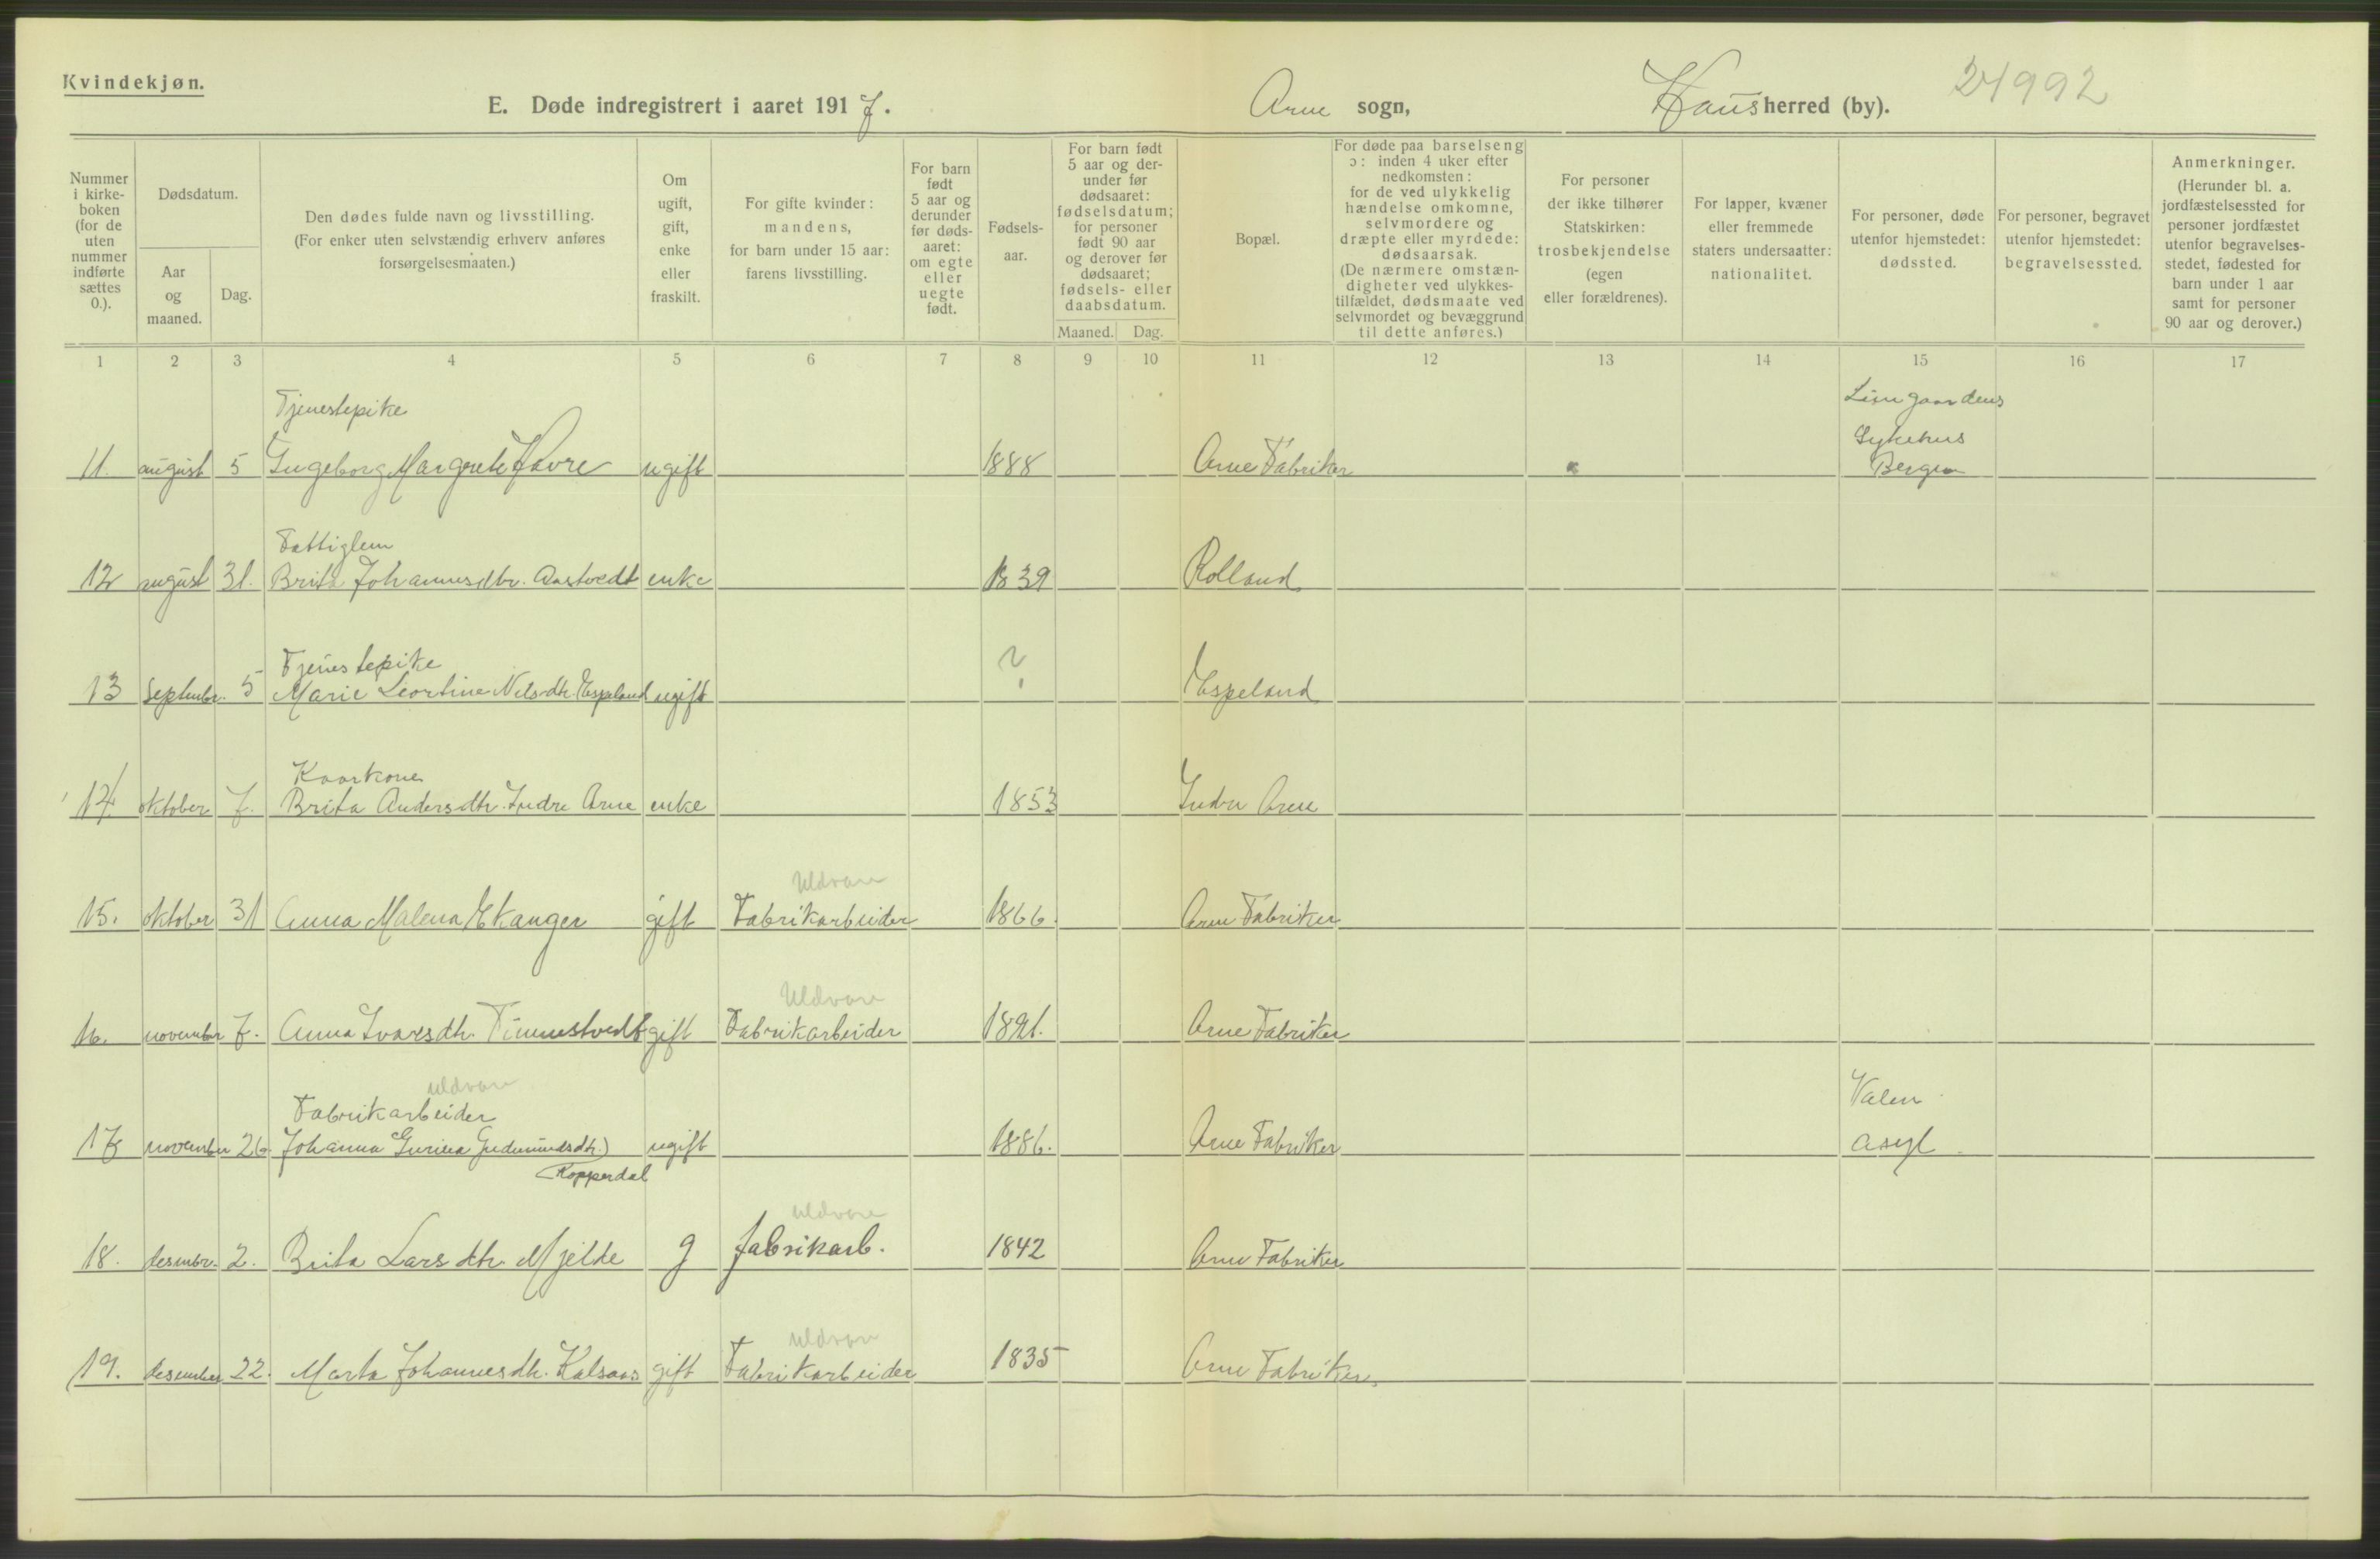 Kvindekjøn.
E. Døde indregistrert i aaret 1917. Arne sogn, Haus herred (by). 24992
Nummer i kirkeboken (for de uten nummer indførte sættes 0.).
Dødsdatum.
Aar og maaned.
Dag.
Den dødes fulde navn og livsstilling. (For enker uten selvstændig erhverv anføres forsørgelsesmaaten.)
Om ugift, gift, enke eller fraskilt.
For gifte kvinder: mandens, for barn under 15 aar: farens livsstilling.
For barn født 5 aar og derunder før dødsaaret: om egte eller uegte født.
Fødselsaar.
For barn født 5 aar og derunder før dødsaaret: fødselsdatum; for personer født 90 aar og derover før dødsaaret; fødsels- eller daabsdatum.
Maaned. Dag.
Bopæl.
For døde paa barselseng ɔ: inden 4 uker efter nedkomsten: for de ved ulykkelig hændelse omkomne, selvmordere og dræpte eller myrdede: dødsaarsak. (De nærmere omstændigheter ved ulykkestilfældet, dødsmaate ved selvmordet og bevæggrund til dette anføres.)
For personer der ikke tilhører Statskirken: trosbekjendelse (egen eller forældrenes).
For lapper, kvæner eller fremmede staters undersaatter: nationalitet.
For personer, døde utenfor hjemstedet: dødssted.
For personer, begravet utenfor hjemstedet: begravelsessted.
Anmerkninger. (Herunder bl. a. jordfæstelsessted for personer jordfæstet utenfor begravelsesstedet, fødested for barn under 1 aar samt for personer 90 aar og derover.)
1 2 3 4 5 6 7 8 9 10 11 12 13 14 15 16 17
Tjenestepike Lungaardens
Sykehus
11. august 5 Ingeborg Margrete Havre ugift 1888 Arne Fabriker Bergen
Fattiglem
12 august 31. Brita Johannesdtr. Aastvedt enke 1839 Rolland
Tjenestepike
13 September 5 Marie Leortine Nilsdtr. Espeland ugift ? Espeland
Kaarkone
14. oktober 7. Brita Andersdtr. Indre Arne enke 1853 Indre Arne
Uldvare
15. oktober 31 Anna Malena Ekanger gift Fabrikarbeider 1866. Arne Fabriker
Uldvare
16. november 7. Anna Ivarsdtr. Timmestvedt gift Fabrikarbeider 1891. Arne Fabriker
Uldvare
Fabrikarbeider Valen
17 november 26. Johanna Gurina Gudmundsdtr. ugift 1886. Arne Fabriker asyl
Kopperdal
Uldvare
18. desembr. 2. Brita Larsdtr. Mjelde g fabrikarb. 1842 Arne Fabriker
Uldvare
19. desember 22. Marta Johannesdtr. Kalsaas gift Fabrikarbeider 1835 Arne Fabriker